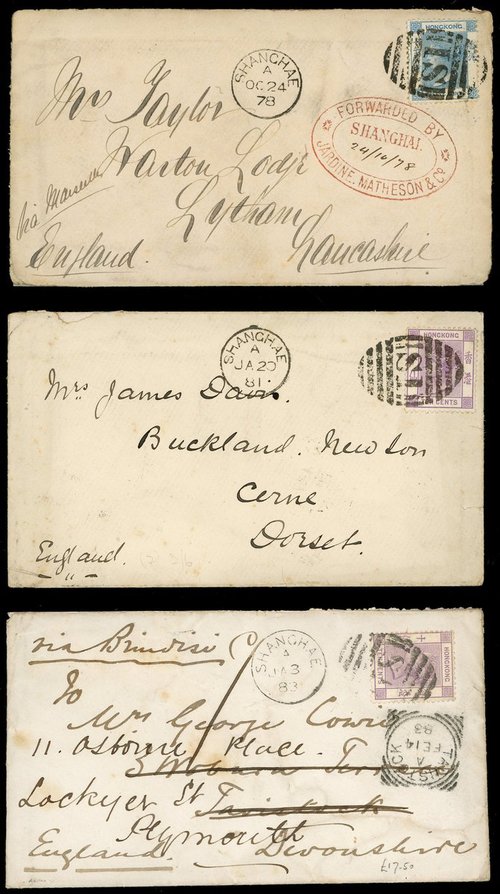 HONGKONG
S1
SHANGHAE
A
OC 24
78
FORWARDED BY
SHANGHAI.
24/10/78
JARDINE, MATHESON & Co
Mrs Taylor
Warton Lodge
Lytham
Via Marseilles
England.
Lancashire
SHANGHAE
A
JA 20
81
HONGKONG
CENTS
Mrs James Dawn.
Buckland. Newton
Cerne
Dorset.
England.
via Brindisi
SHANGHAE
A
JA 3
83
HONGKONG
To
Mrs George Cowie
11. Osborne Place.
Lockyer St Tavistock
Plymouth
England. Devonshire
TAVISTOCK
A
FE 14
83
£17.50